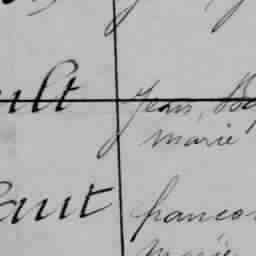 ult Jean, Ba
marie
aut francoi
marie